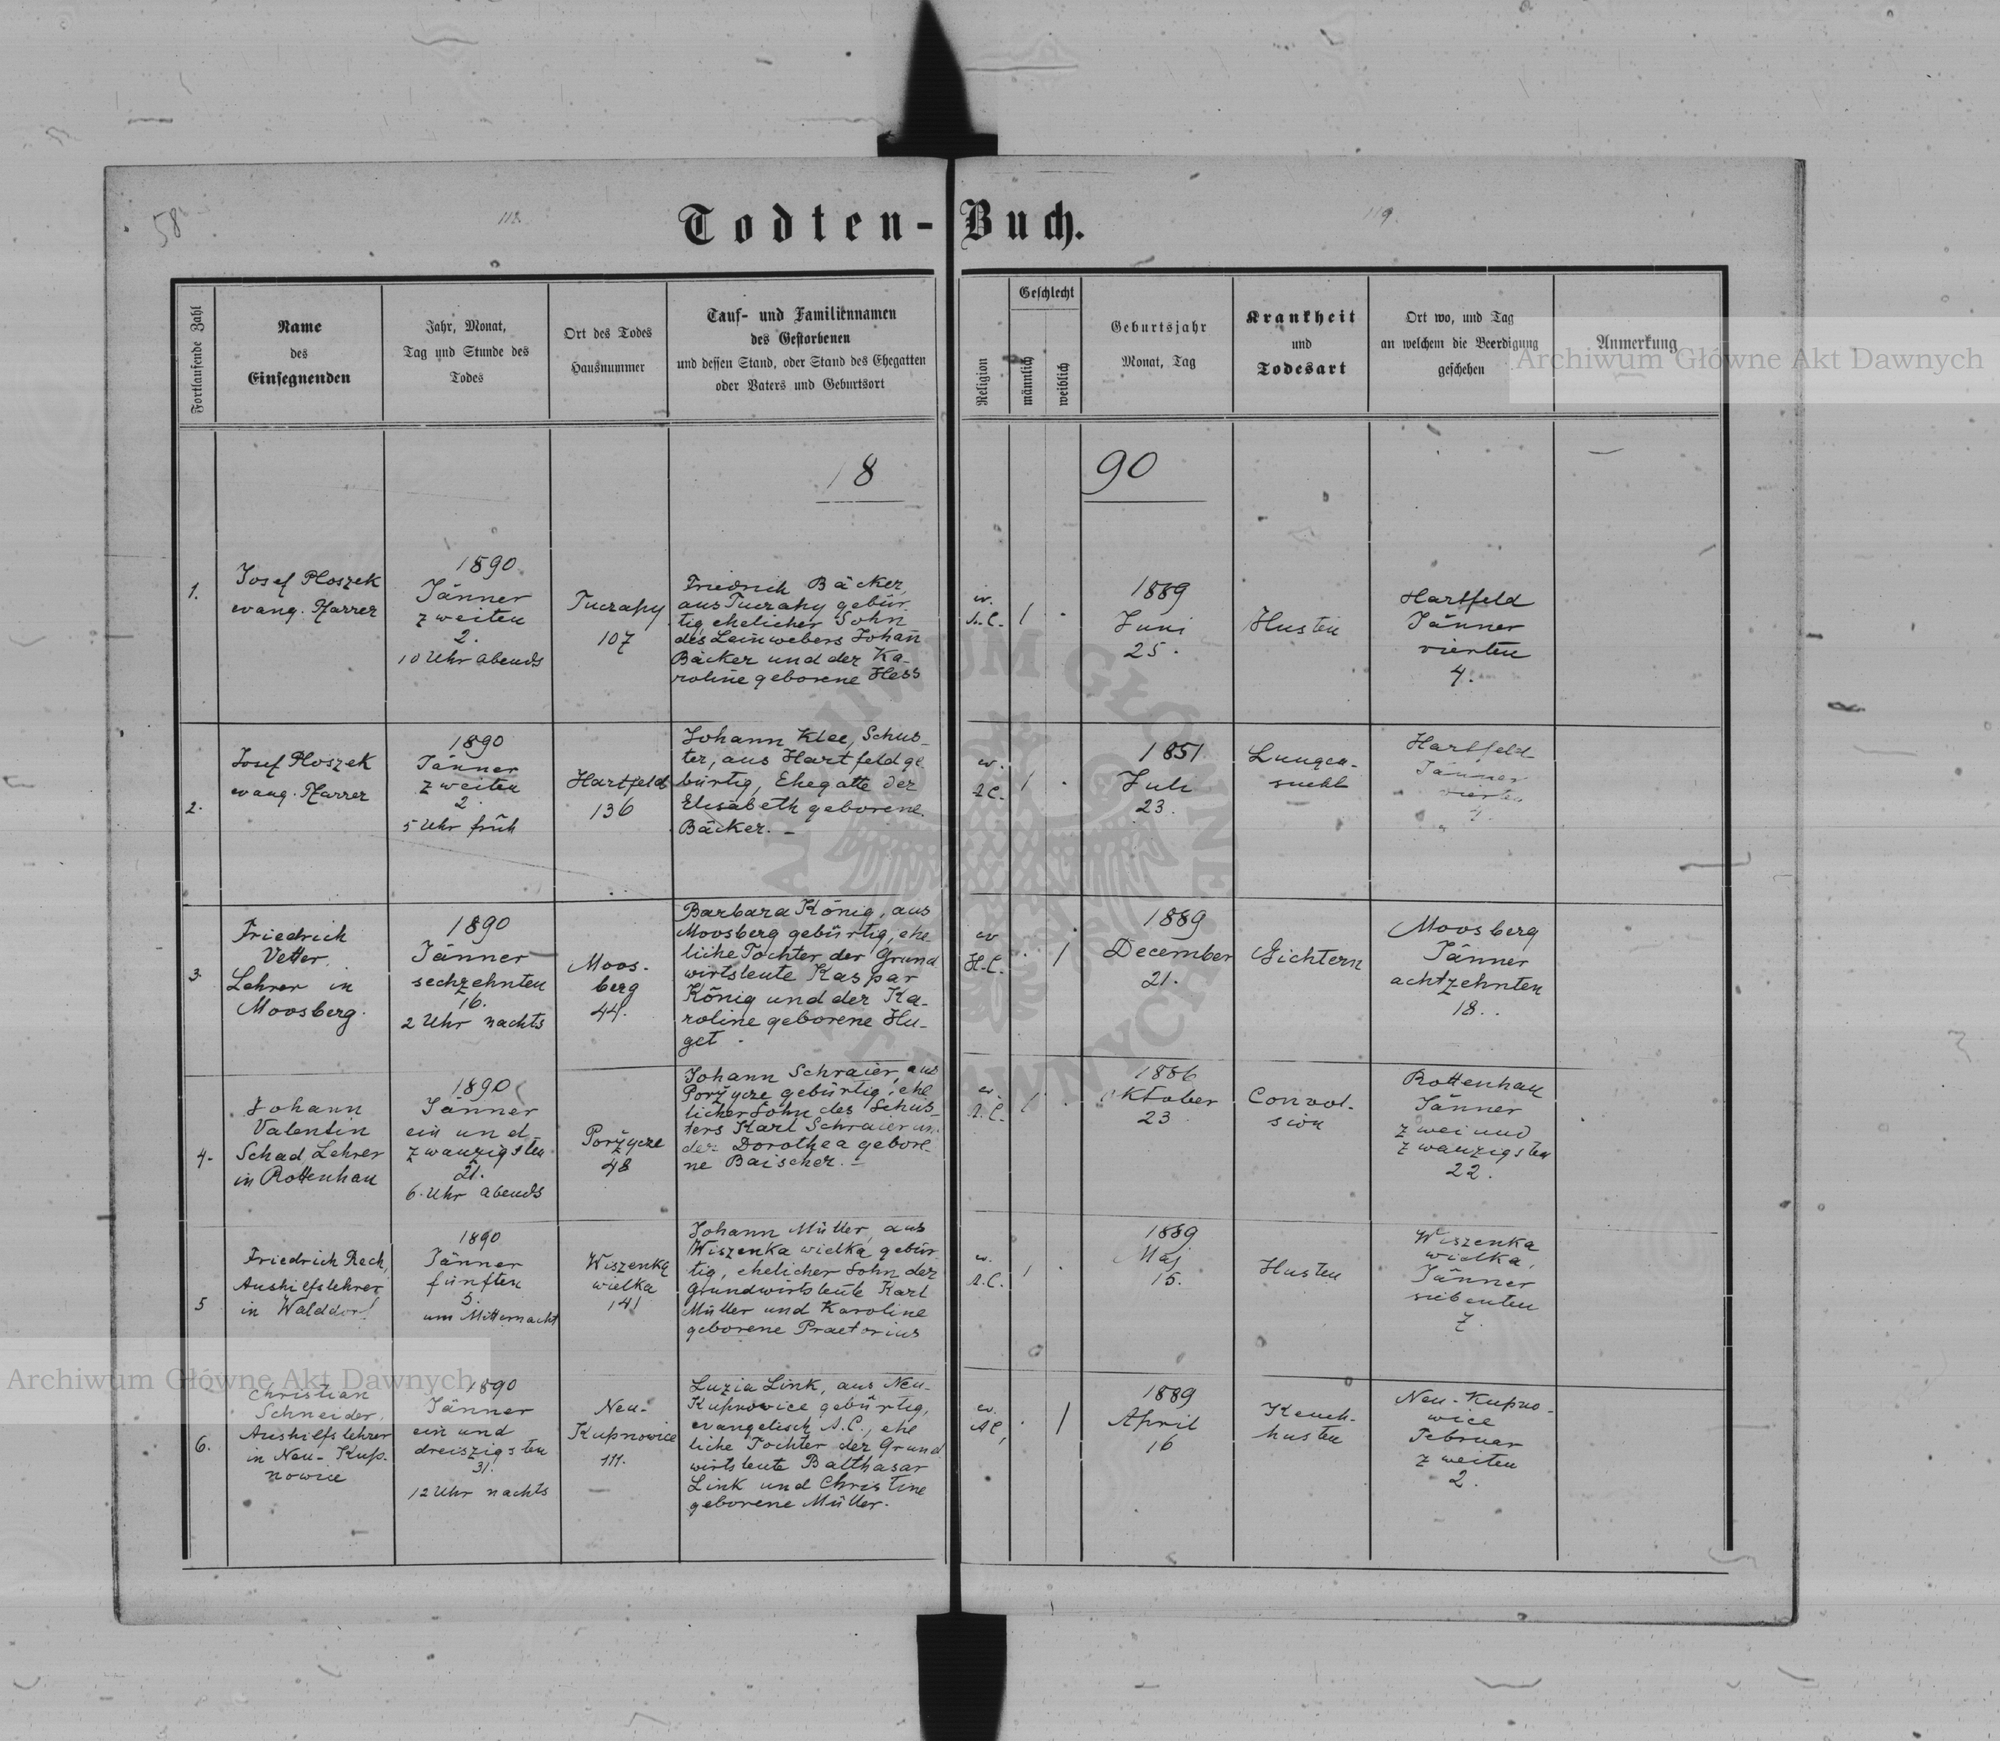 58
118.
Todten-Buch.
119.
Fortlaufende Zahl
Name
des
Einsegnenden
Jahr, Monat,
Tag und Stunde des
Todes
Ort des Todes
Hausnummer
Tauf- und Familiennamen
des Gestorbenen
und dessen Stand, oder Stand des Ehegatten
oder Vaters und Geburtsort
Religion
Geschlecht
männlich
weiblich
Geburtsjahr
Monat, Tag
Krankheit
und
Todesart
Ort wo, und Tag
an welchem die Beerdigung
geschehen
Anmerkung
Archiwum Główne Akt Dawnych
1890
1.
Josef Ploszek
evang. Pfarrer
1890
Jänner
zweiten
2.
10 Uhr abends
Tuczapy
107
Friedrich Bäcker,
aus Tuczapy gebür
tig ehelicher Sohn
des Leinwebers Johan
Bäcker und der Ka-
roline geborene Hess
ev.
A.C.
1
1889
Juni
25.
Husten
Hartfeld
Jänner
vierten
4.
2.
Josef Ploszek
evang. Pfarrer
1890
Jänner
zweiten
2.
5 Uhr früh
Hartfeld
136
Johann Klee, Schus-
ter, aus Hartfeld ge
bürtig, Ehegatte der
Elisabeth geborene
Bäcker. -
ev.
A.C.
1
1851
Juli
23.
Lungen-
sucht
Hartfeld
Jänner
vierten
4.
3.
Friedrich
Vetter,
Lehrer in
Moosberg.
1890
Jänner
sechzehnten
16.
2 Uhr nachts
Moos-
berg
44.
Barbara König, aus
Moosberg gebürtig, ehe-
liche Tochter der Grund
wirtsleute Kaspar
König und der Ka-
roline geborene Hu-
get.
ev
H.C.
1
1889
December
21.
Gichtern
Moosberg
Jänner
achtzehnten
18.
4.
Johann
Valentin
Schad Lehrer
in Rottenhan
1890
Jänner
ein und
zwanzigsten
21.
6 Uhr abends
Porzycze
48
Johann Schraier, aus
Porzycze gebürtig, ehe
licher Sohn des Schus-
ters Karl Schraier un.
der Dorothea gebore-
ne Baischer. -
ev.
A.C.
1
1886
Oktober
23
Convul-
sion
Rottenhan
Jänner
zwei und
zwanzigsten
22.
5
Friedrich Rech,
Aushilfslehrer
in Walddorf
1890
Jänner
fünften
5.
um Mitternacht
Wiszenka
wielka
141
Johann Müller, aus
Wiszenka wielka gebür-
tig, ehelicher Sohn der
Grundwirtsleute Karl
Müller und Karoline
geborene Praetorius
ev.
A.C.
1
1889
Maj
15.
Husten
Wiszenka
wielka,
Jänner
siebenten
7.
Archiwum Główne Akt Dawnych
6.
Christian
Schneider,
Aushilfslehrer
in Neu-Kup-
nowice
1890
Jänner
ein und
dreiszigsten
31.
12 Uhr nachts
Neu-
Kupnowice
111.
Luzia Link, aus Neu-
Kupnowice gebürtig,
evangelisch A.C., ehe
liche Tochter der Grund
wirtsleute Balthasar
Link und Christine
geborene Müller.
ev.
A.C,
1
1889
April
16
Keuch-
husten
Neu-Kupno-
wice
Februar
zweiten
2.
ARCHIWUM GŁÓWNE AKT DAWNYCH